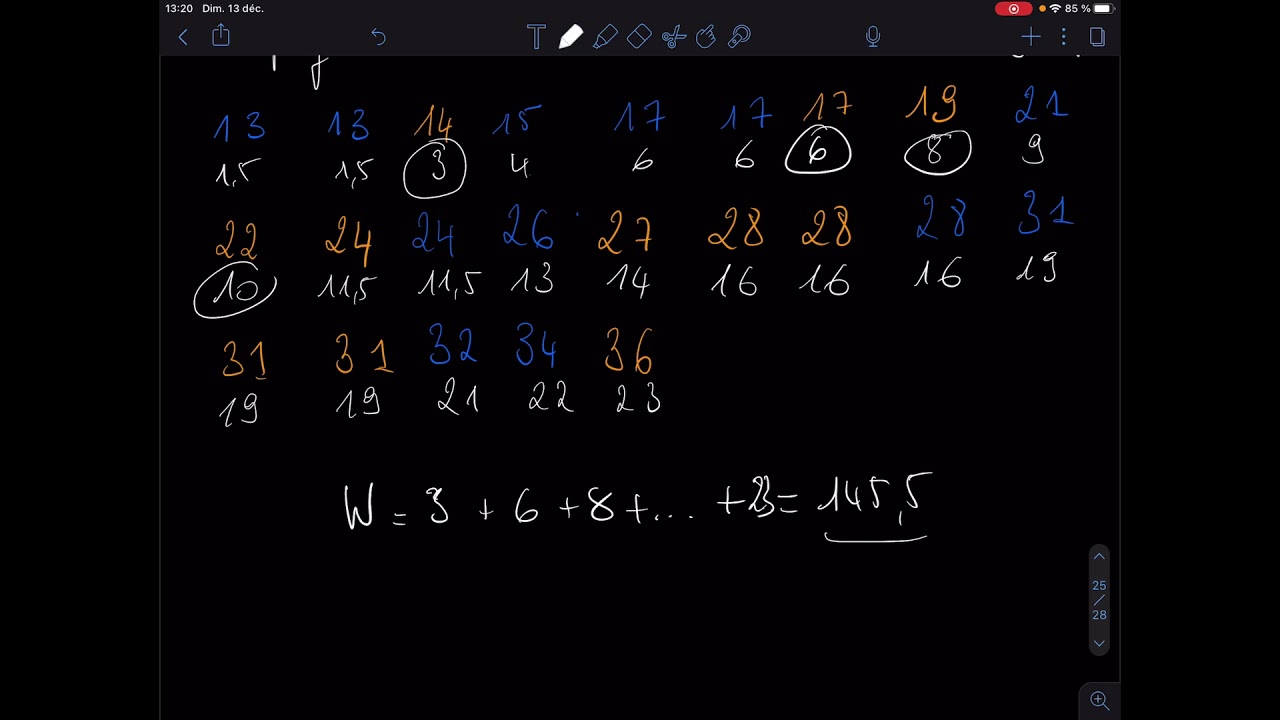 13:20 Dim. 13 déc. 85 %
13 13 14 15 17 17 17 19 21
1,5 1,5 3 4 6 6 6 8 9
22 24 24 26 27 28 28 28 31
10 11,5 11,5 13 14 16 16 16 19
31 31 32 34 36
19 19 21 22 23
W = 3 + 6 + 8 + ... + 23 = 145,5
25
/
28